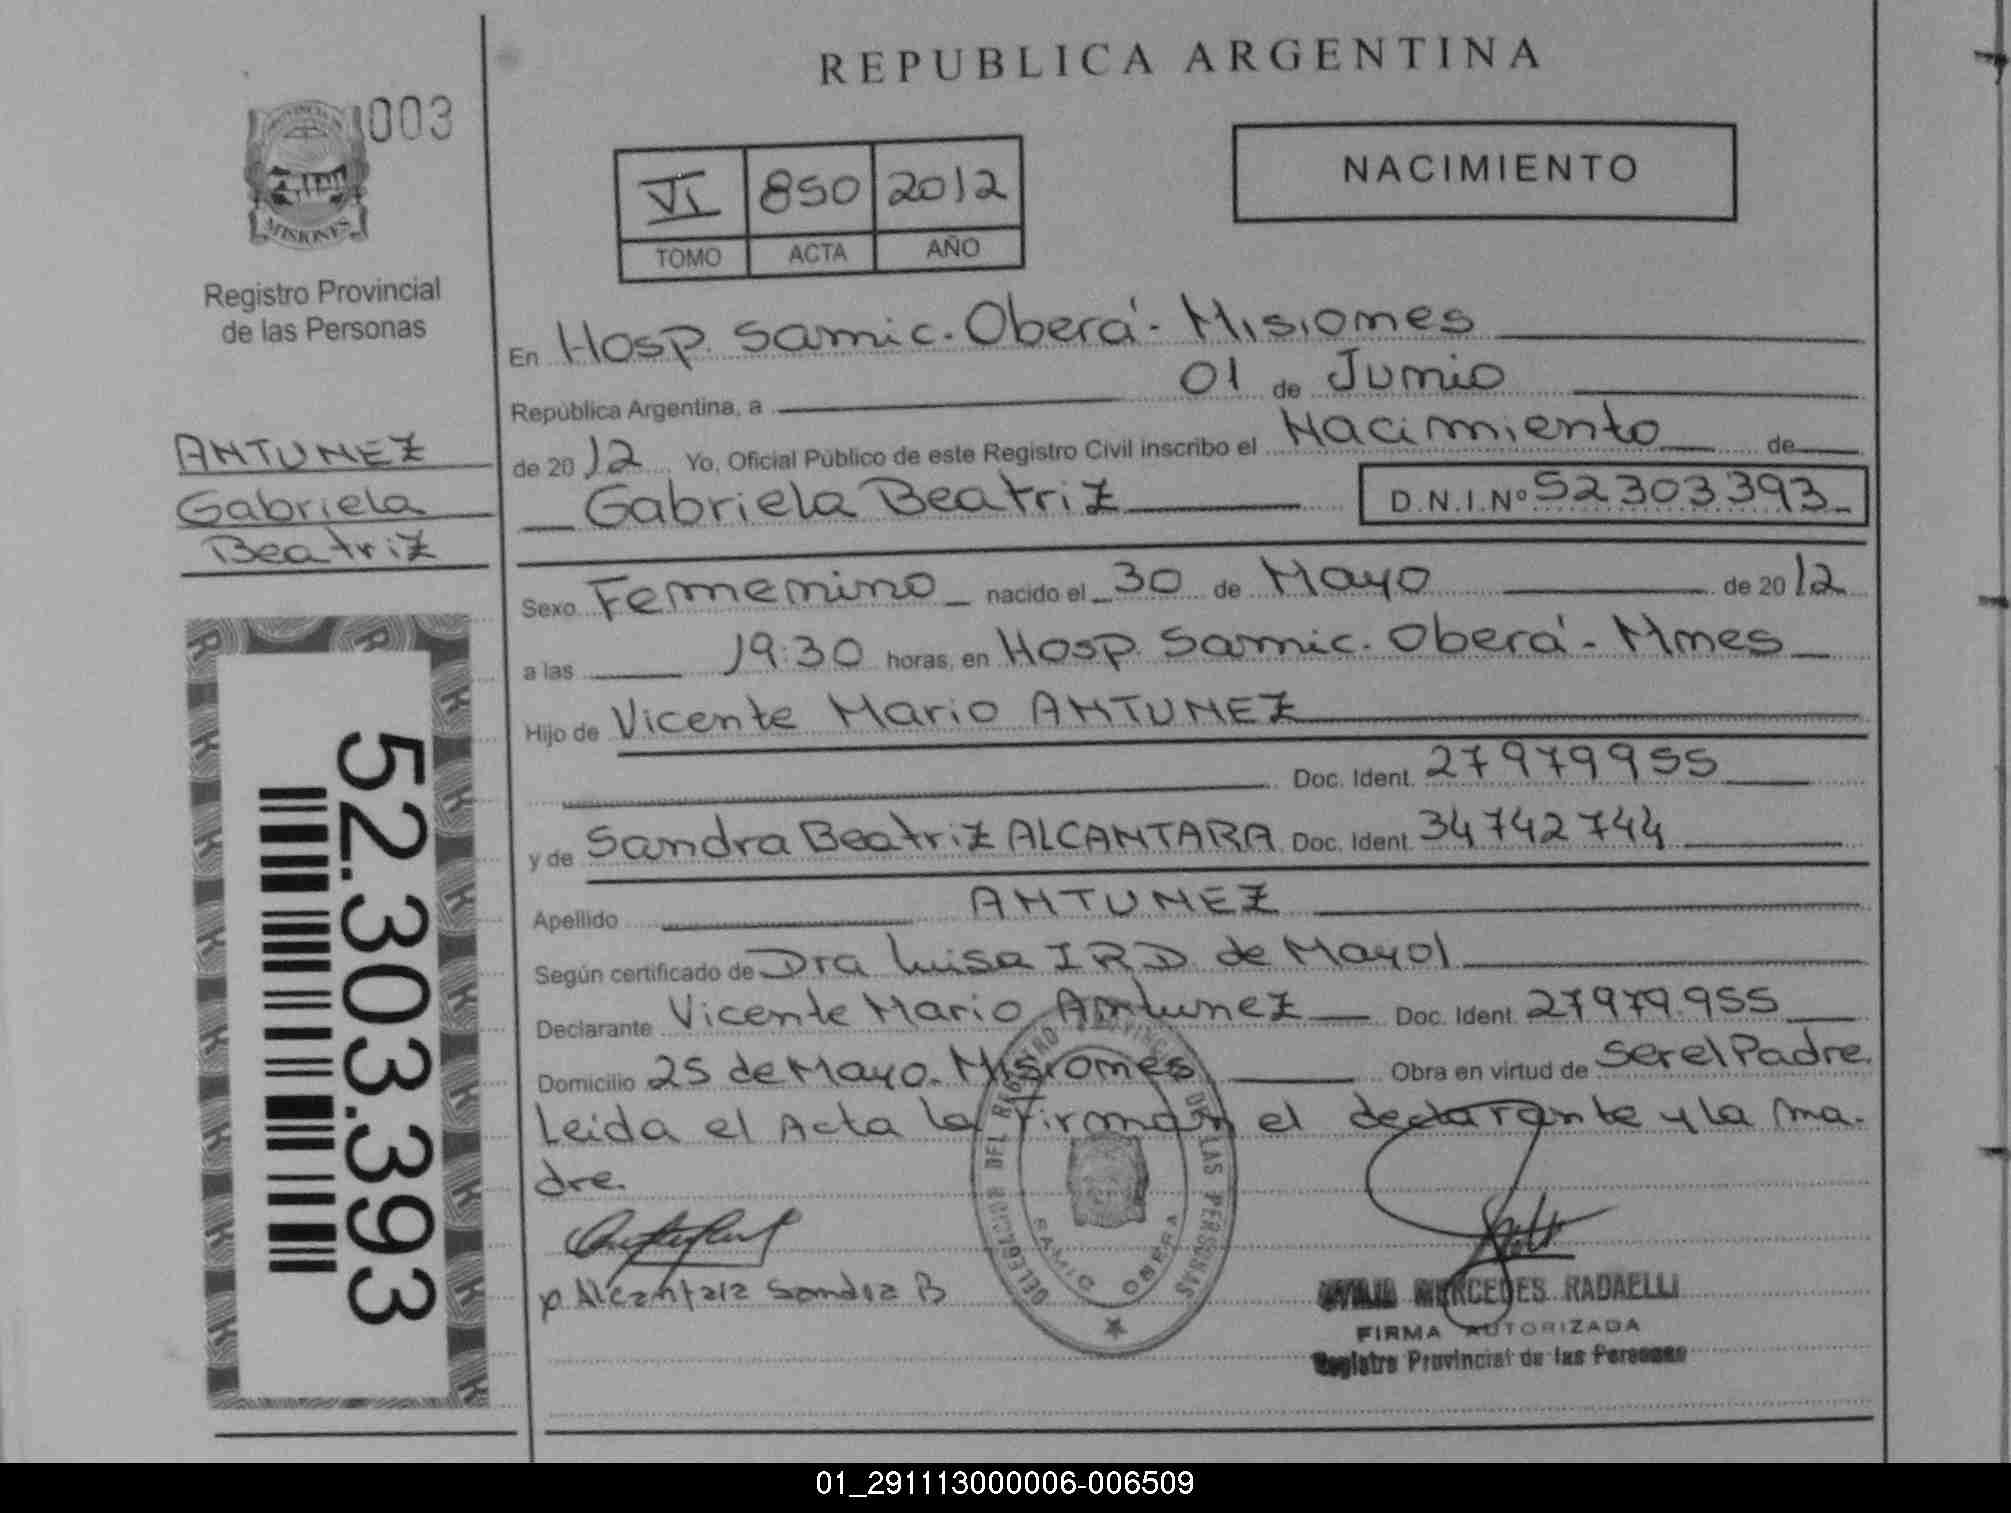 REPUBLICA ARGENTINA
003
PROVINCIA DE
MISIONES
Registro Provincial
de las Personas
ANTUNEZ
Gabriela
Beatriz
52.303.393
VI 850 2012
TOMO ACTA AÑO
NACIMIENTO
En Hosp. Samic. Oberá - Misiones
República Argentina, a 01 de Junio
de 2012 Yo, Oficial Público de este Registro Civil inscribo el Nacimiento de
Gabriela Beatriz D.N.I.Nº 52303393
Sexo Femenino nacido el 30 de Mayo de 2012
a las 19:30 horas, en Hosp. Samic. Oberá - Mnes
Hijo de Vicente Mario ANTUNEZ
Doc. Ident. 27979955
y de Sandra Beatriz ALCANTARA Doc. Ident. 34742744
Apellido ANTUNEZ
Según certificado de Dra Luisa I R D de Mayol
Declarante Vicente Mario Antunez Doc. Ident. 27979.955
Domicilio 25 de Mayo. Misiones Obra en virtud de ser el Padre.
Leida el Acta la firman el declarante y la ma-
dre.
p Alcantara Sandra B
DELEGACION DEL REGISTRO PROVINCIAL DE LAS PERSONAS
SAMIC OBERA
MERCEDES RADAELLI
FIRMA AUTORIZADA
Registro Provincial de las Personas
01_291113000006-006509